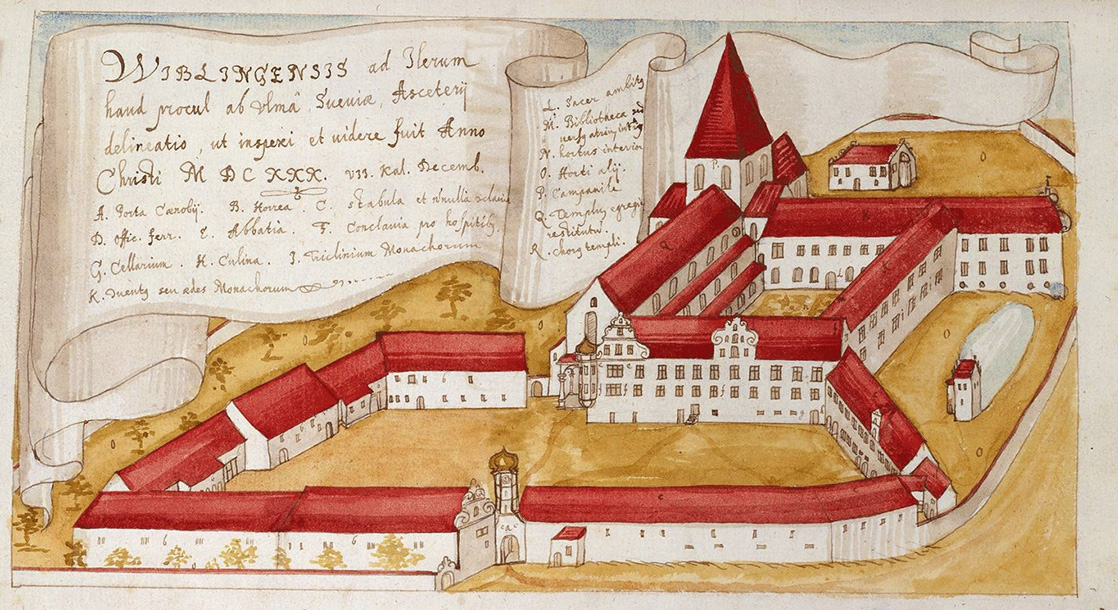 WIBLINGENSIS ad Ilerum
haud procul ab Ulmâ Sueviæ, Asceterij
delineatio, ut inspexi et videre fuit Anno
Christi M DC XXX. VII. Kal. Decemb.
A. Porta Cœnobij. B. Horrea. C. Stabula et nonnulla
D. Offic. ferr. E. Abbatia. F. Conclavia pro hospitib.
G. Cellarium. H. Culina. I. Triclinium Monachorum
K. seu ædes Monachorum
L. Sacer ambitq
M. Bibliotheca
N. hortus interior
O. Horti alij.
P. Campanile
Q. Templum egregie
restitutum.
R. chorq templi.